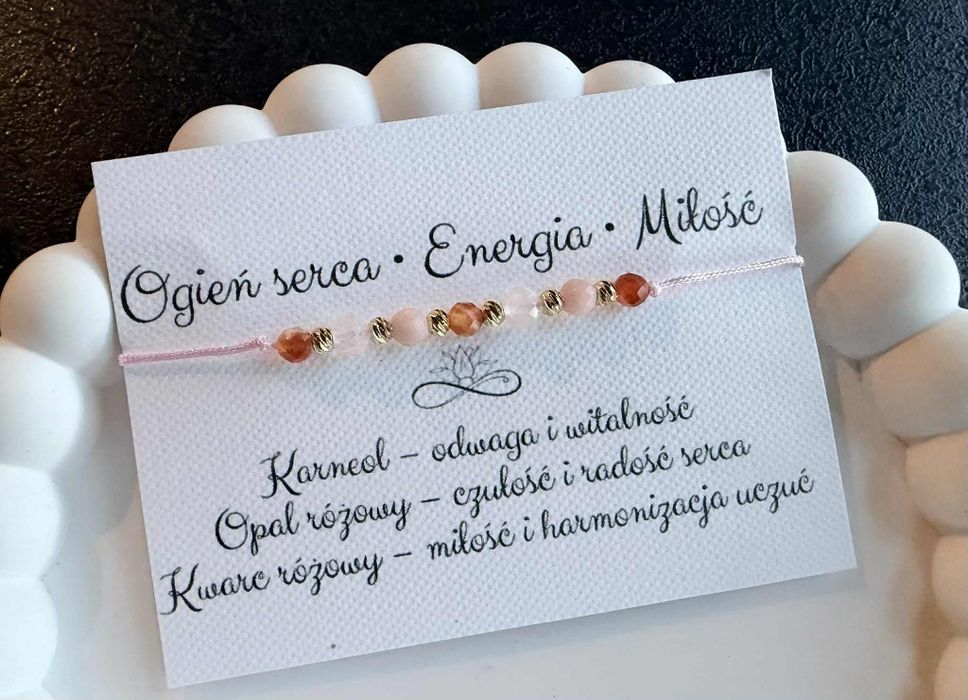 Ogień serca • Energia • Miłość
Karneol – odwaga i witalność
Opal różowy – czułość i radość serca
Kwarc różowy – miłość i harmonizacja uczuć